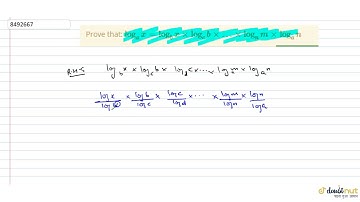 8492667
Prove that: log_a x = log_b x × log_c b × ... × log_n m × log_a n
R.H.S log_b x × log_c b × log_d c × ..... × log_n m × log_a n
log x / log b × log b / log c × log c / log d × ... × log m / log n × log n / log a
doubtnut